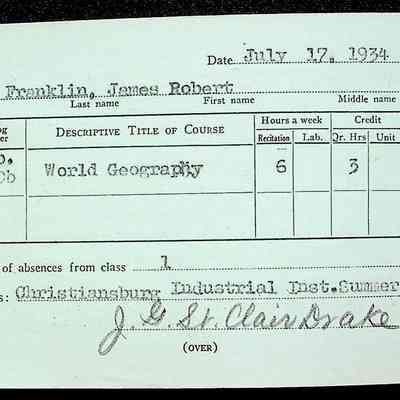 Date July 17, 1934
Franklin, James Robert
Last name First name Middle name
og DESCRIPTIVE TITLE OF COURSE Hours a week Credit
er Recitation Lab. Qr. Hrs Unit
World Geography 6 3
of absences from class 1
s: Christiansburg Industrial Inst. Summer
J. G. St. Clair Drake
(OVER)